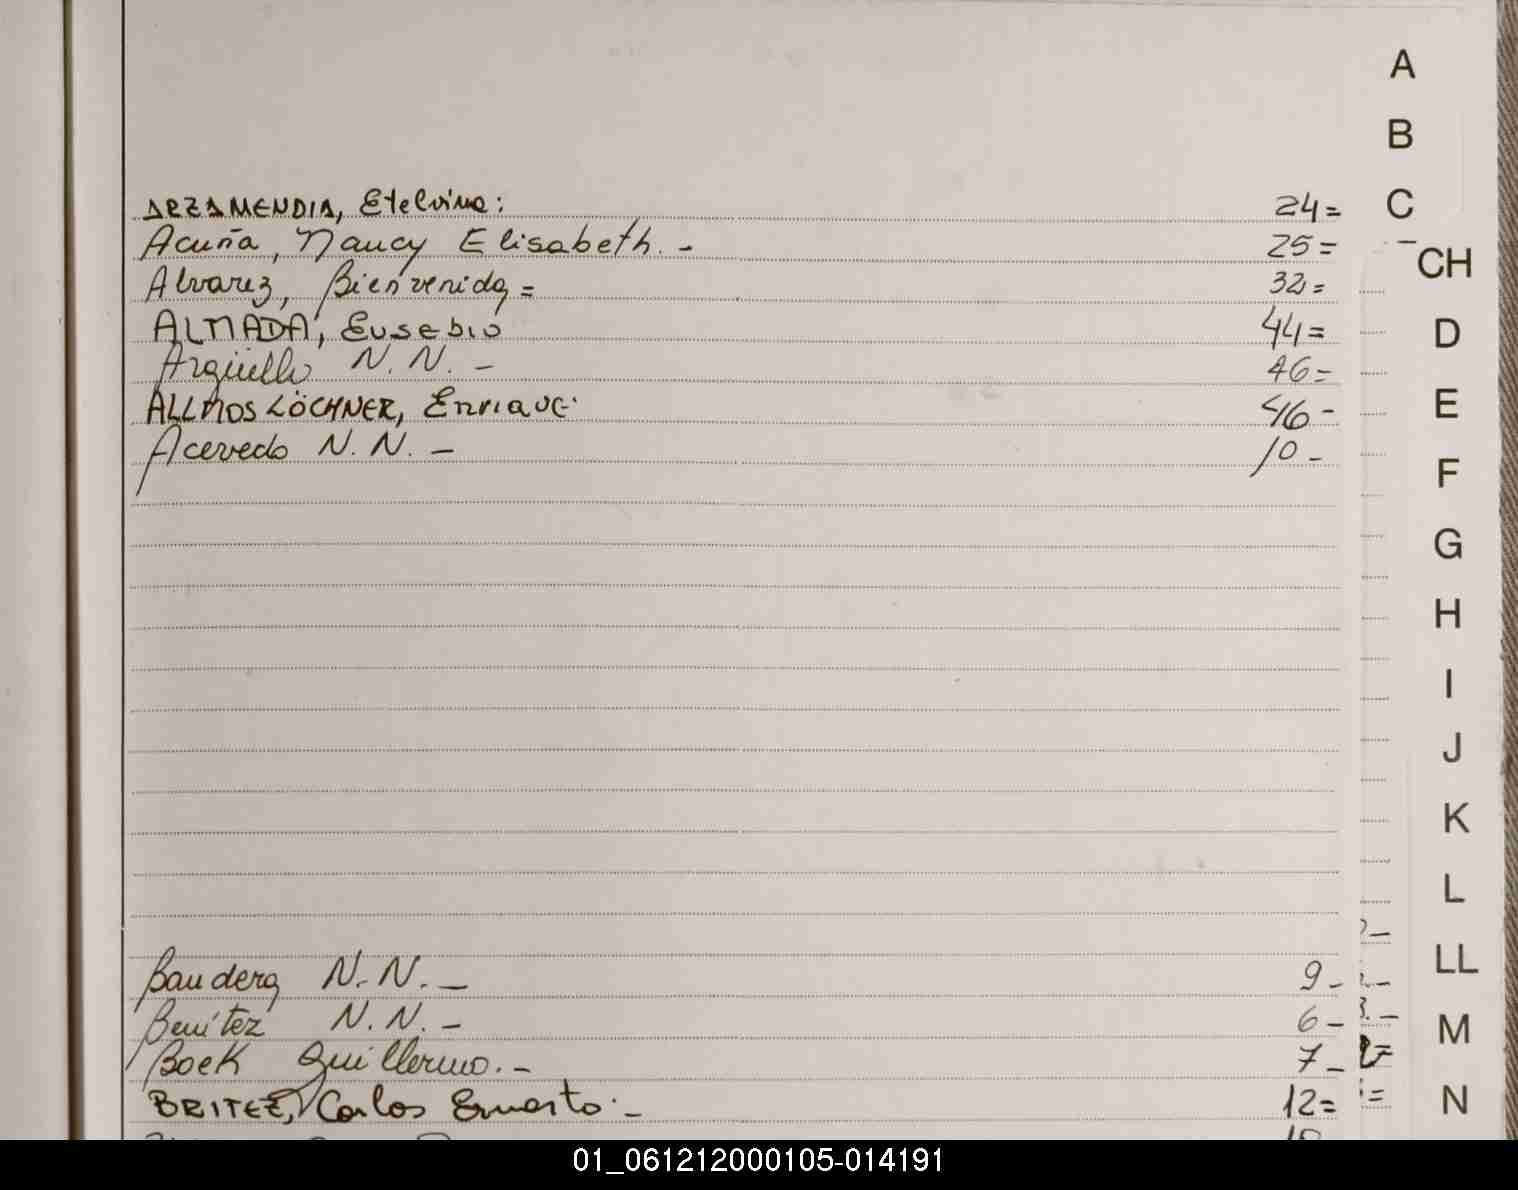 ARZAMENDIA, Etelvina: 24=
Acuña, Nancy Elisabeth. - 25=
Alvarez, Bienvenida = 32=
ALMADA, Eusebio 44=
Argüello N.N. - 46=
ALLMOS LÖCHNER, Enrique. 46-
Acevedo N.N. - 10-
Bandera N.N. - 9-
Benitez N.N. - 6-
Boek Guillermo. - 7-
BRITEZ, Carlos Ernesto. - 12=
A
B
C
CH
D
E
F
G
H
I
J
K
L
LL
M
N
01_061212000105-014191